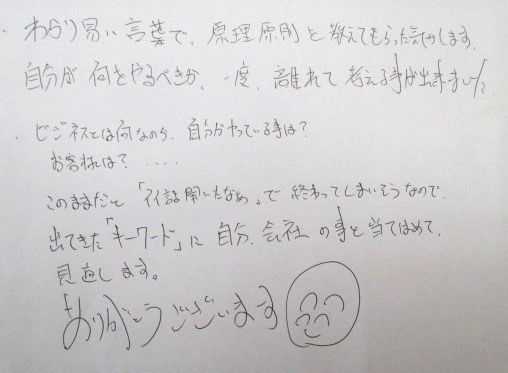 ・わかり易い言葉で、原理原則を教えてもらった気がします。
自分が何をやるべきか、一度、離れて考える事が出来ました。
・ビジネスとは何なのか、自分がやっている事は?
お客様は? ‥‥
このままだと「イイ話聞いたなぁ」で終わってしまいそうなので、
出てきた「キーワード」に自分、会社の事を当てはめて、
見直します。
ありがとうございます